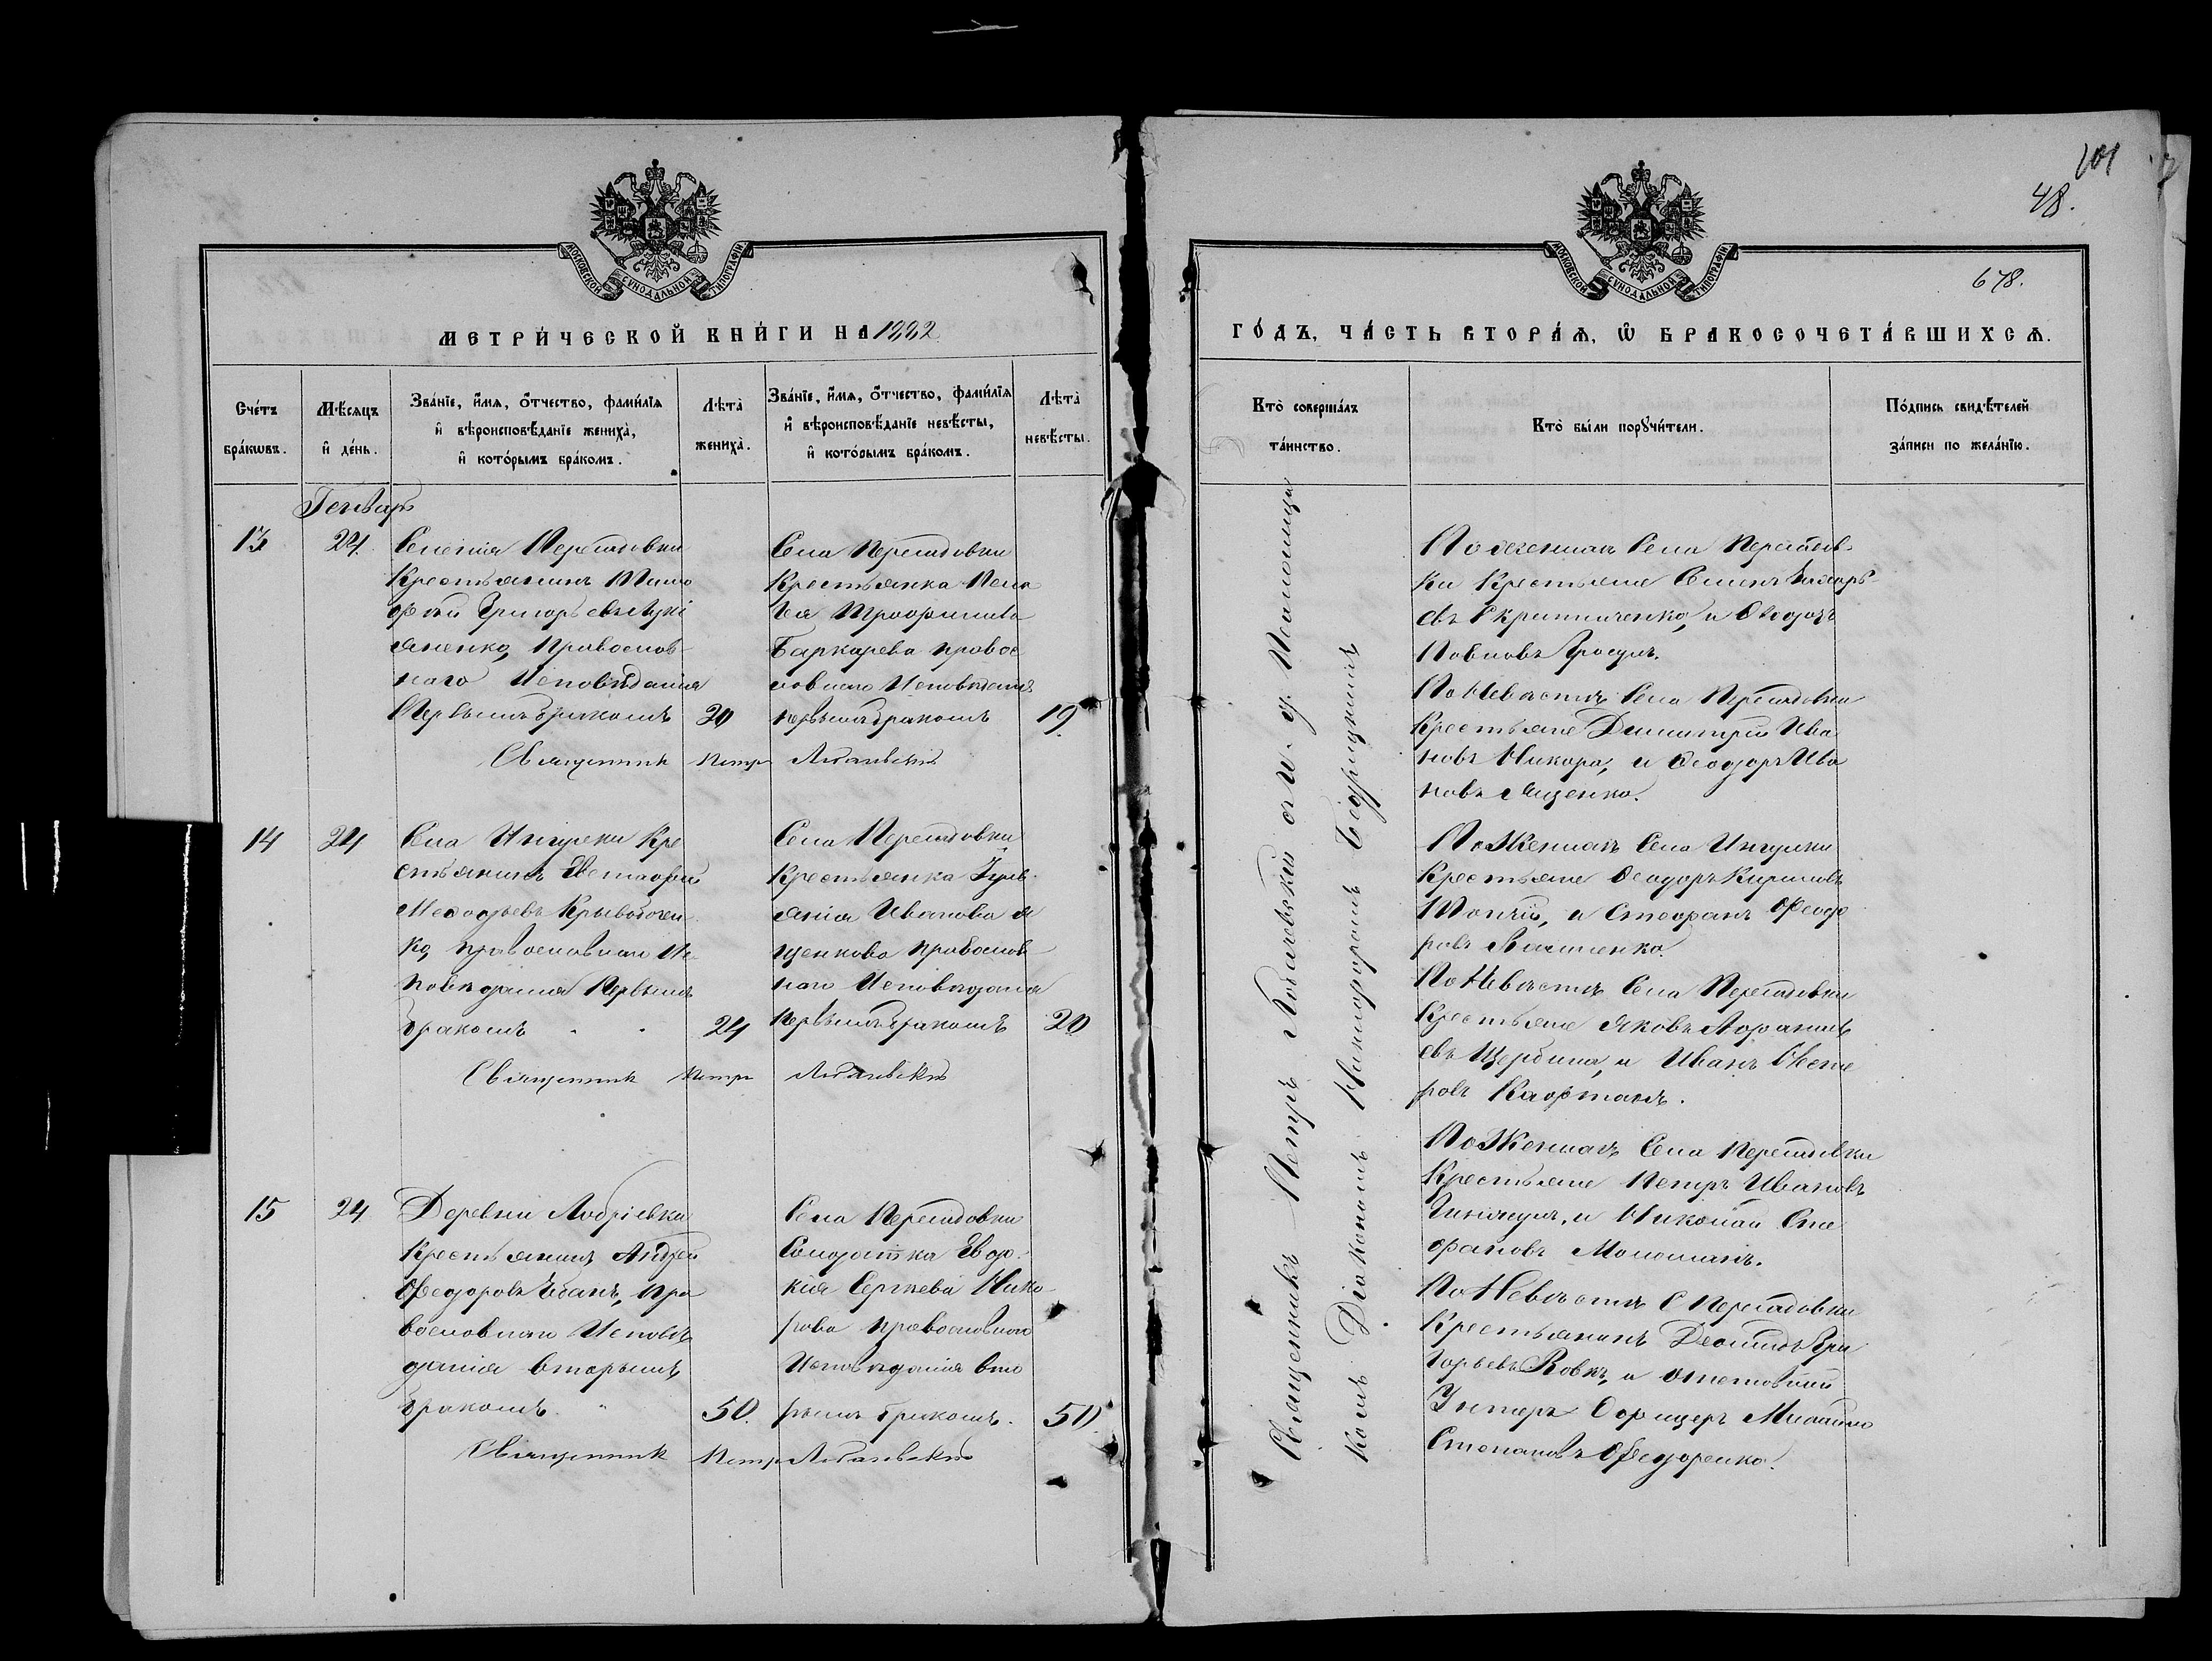 101
48.
678.
МОСКОВСКОЙ СѴНОДАЛЬНОЙ ТИПОГРАФІИ
МЕТРИ́ЧЕСКОЙ КНИ́ГИ НА 1882
Сче́тъ бра́кѡвъ.
Мѣ́сяцъ и҆ де́нь.
Зва́нїе, и҆́мѧ, ѻ҆́тчество, фами́лїѧ
и҆ вѣроисповѣ́данїе жениха̀,
и҆ кото́рымъ бра́комъ.
Лѣта̀ жениха̀.
Зва́нїе, и҆́мѧ, ѻ҆́тчество, фами́лїѧ
и҆ вѣроисповѣ́данїе невѣ́сты,
и҆ кото́рымъ бра́комъ.
Лѣта̀ невѣ́сты.
Генварь
13
24.
Селенія Пересадовки
Крестьянинъ Тимо
фей Григорьевъ
яненко, Православ
наго Исповѣданія
Первымъ бракомъ
20
Села Пересадовки
Крестьянка Пела
гея Трофимова
Баркарева правос
лавнаго Исповѣданія
первымъ бракомъ
19
Священникъ Петръ
14
24
Села Ингулки Кре
стьянинъ Евстафій
Меѳодьевъ
ко, православнаго Ис
повѣданія Первымъ
бракомъ
24
Села Пересадовки
Крестьянка Іулі
анія Иванова Я
щенкова православ
наго Исповѣданія
Первымъ бракомъ
20
Священникъ Петръ
15
24
Деревни
Крестьянинъ Андрей
Феодоровъ Чбанъ, пра
вославнаго Исповѣ
данія вторымъ
бракомъ
50.
Села Пересадовки
Солдатка Евдо
кія Сергѣева Нико
рова православнаго
Исповѣданія вто
рымъ бракомъ.
50
Священникъ Петръ
МОСКОВСКОЙ СѴНОДАЛЬНОЙ ТИПОГРАФІИ
ГО́ДЪ, ЧА́СТЬ ВТОРА́Ѧ, Ѽ БРАКОСОЧЕТА́ВШИХСѦ.
Кто̀ соверша́лъ
та́инство.
Кто̀ бы́ли порꙋчи́тели.
По́дпись свидѣ́телей
за́писи по жела́нїю.
Священникъ Петръ и. д. Псаломщика
комъ Діакономъ Никифоромъ
По женихѣ Села Пересадов
ки Крестьяне Семенъ
евъ Скрипниченко, и Ѳеодоръ
Павловъ
По Невѣстѣ Села Пересадовки
Крестьяне Димитрій Ива
новъ Никора, и Ѳеодоръ Ива
новъ Ященко.
По Женихѣ Села Ингулки
Крестьяне Ѳеодоръ Кириловъ
Топчій, и Стефанъ Феодо
ровъ
По Невѣстѣ Села Пересадовки
Крестьяне Яковъ Афанась
евъ Щербина, и Иванъ Несте
ровъ Кафтанъ.
По Женихѣ Села Пересадовки
Крестьяне Петръ Ивановъ
и Николай Сте
фановъ
По Невѣстѣ С Пересадовки
Крестьянинъ Леонидъ Гри
горьевъ Вовкъ, и отставной
Унтеръ Офицеръ Михаилъ
Степановъ Федоренко.